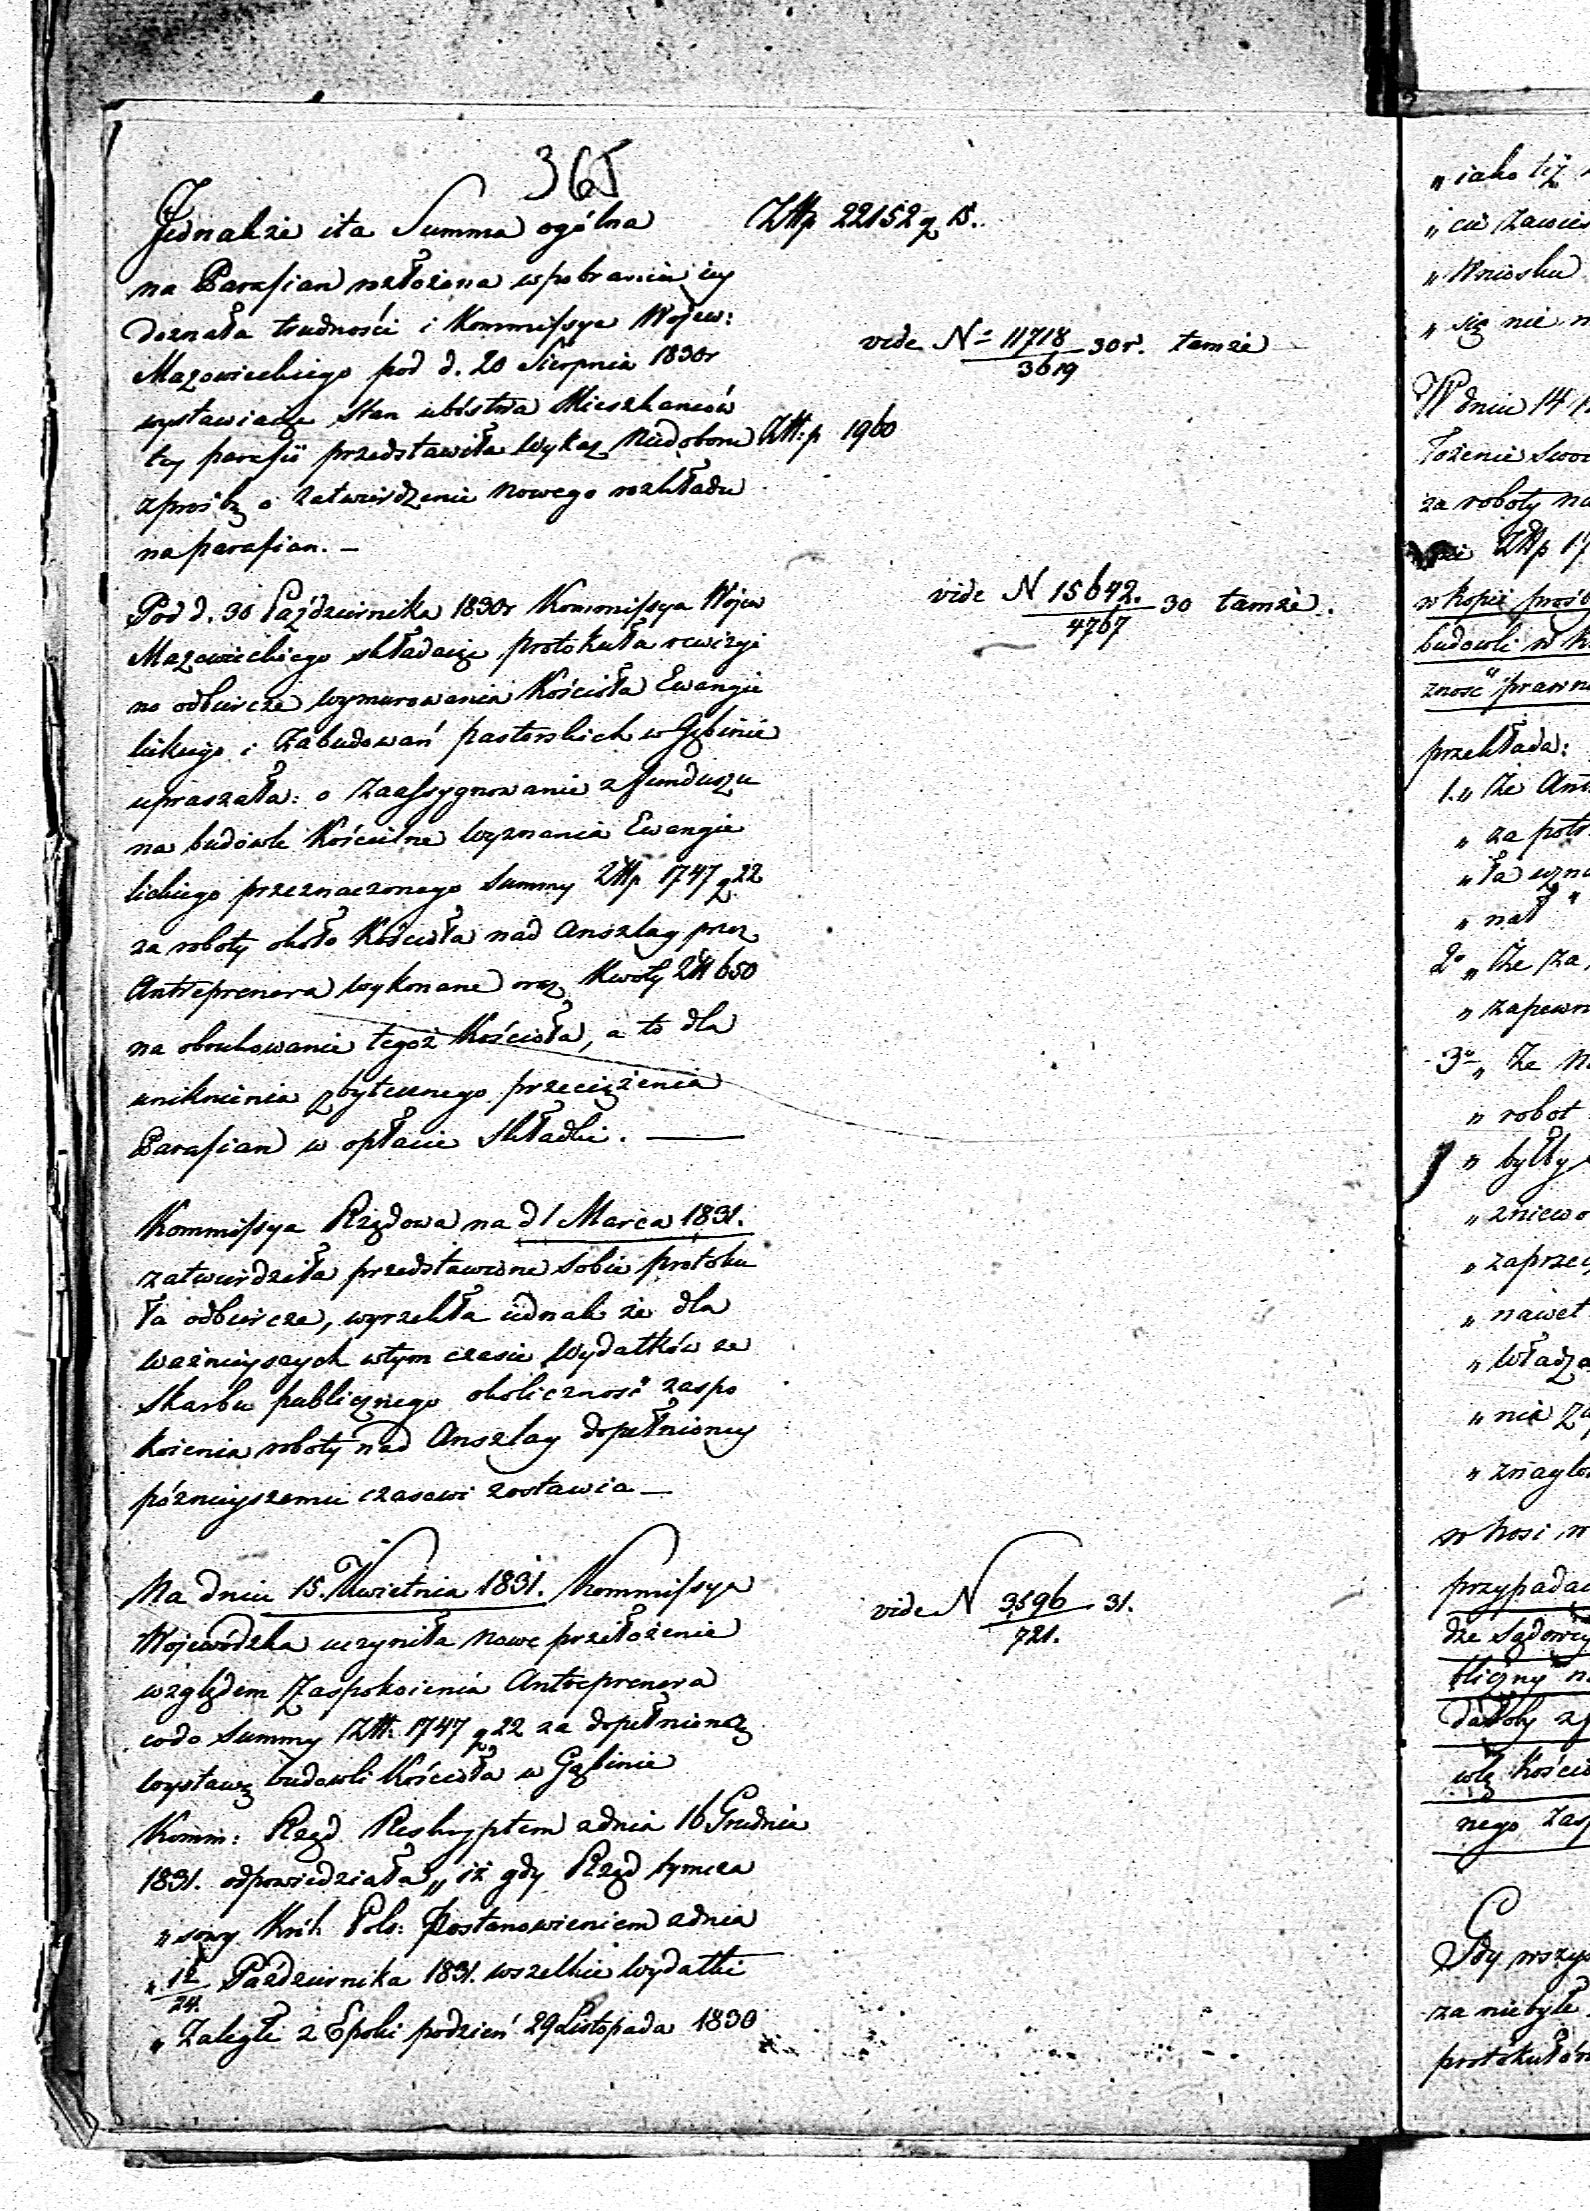 365
Jednakże ita Summa ogólna Złłp 22152 g 15.
na Parafian rozłożona w pobraniu iey
doznała trudności i Kommissya Wojew:
Mazowieckiego pod d. 20 Sierpnia 1830r vide No 11718/3619 30r. tamże
wystawiaiąc stan ubóstwa Mieszkańców
tey parafii przedstawiła Wykaz Niedoboru Złł:p 1960
z prośbą o zatwierdzenie nowego rozkładu
na parafian. —
Pod d. 30 Października 1830r Kommissya Wojew vide N 15642./4767 30 tamże.
Mazowieckiego składaiąc protokuła rewizyi
no odbiorcze wymurowania Kościoła Ewangie
lickiego i Zabudowań pastorskich w Gębinie
upraszała: o Zaassygnowanie z funduszu
na budowle Kościelne Wyznania Ewangie
lickiego przeznaczonego Summy Złłp 1747 g 22
za roboty około Kościoła nad Anszlag przez
Antreprenera wykonane oraz Kwoty Złł 650
na obrukowanie tegoż Kościoła, a to dla
uniknienia zbytecznego przeciążenia
Parafian w opłacie Składki. —
Kommissya Rządowa na d 1 Marca 1831.
zatwierdziła przedstawione sobie protoku
ła odbiorcze, wyrzekła iednak że dla
ważnieyszych w tym czasie Wydatków ze
Skarbu publicznego okoliczność zaspo
koienia roboty nad Anszlag dopełnioney
późnieyszemu czasowi zostawia —
Na dniu 15. Kwietnia 1831. Kommissya vide N 3596/721. 31.
Wojewódzka uczyniła nowe przełożenie
względem Zaspokoienia Antreprenera
co do Summy Złł: 1747 g 22 za dopełnioną
wystawę budowli Kościoła w Gąbinie
Komm: Rząd Reskryptem z dnia 16 Grudnia
1831. odpowiedziała „iż gdy Rząd tymcza
„sowy Król. Pols: Postanowieniem z dnia
„12/24. Października 1831. wszelkie Wydatki
„Zaległe z Epoki podzień 29 Listopada 1830
„ iako też
„ cu zawies
„ Wniosku
„ się nie
W dniu 14
łożenie swoi
za roboty na
Złłp 17
w kopii proś
budowli w K
zność prawn
przekłada:
1. „ Że Ant
„ za potr
„ ła uzna
„ nał
2o „ Że za
„ zapewn
3o „ Że
„ robot
„ byłby
„ zniewo
„ zaprzec
„ nawet
„ Władza
„ nie za
„ znaglo
w kosi
przypada
dze Sądowey
bliczny
wlę Kościo
nego Zasp
Gdy wszys
za niebyłe
protokułów